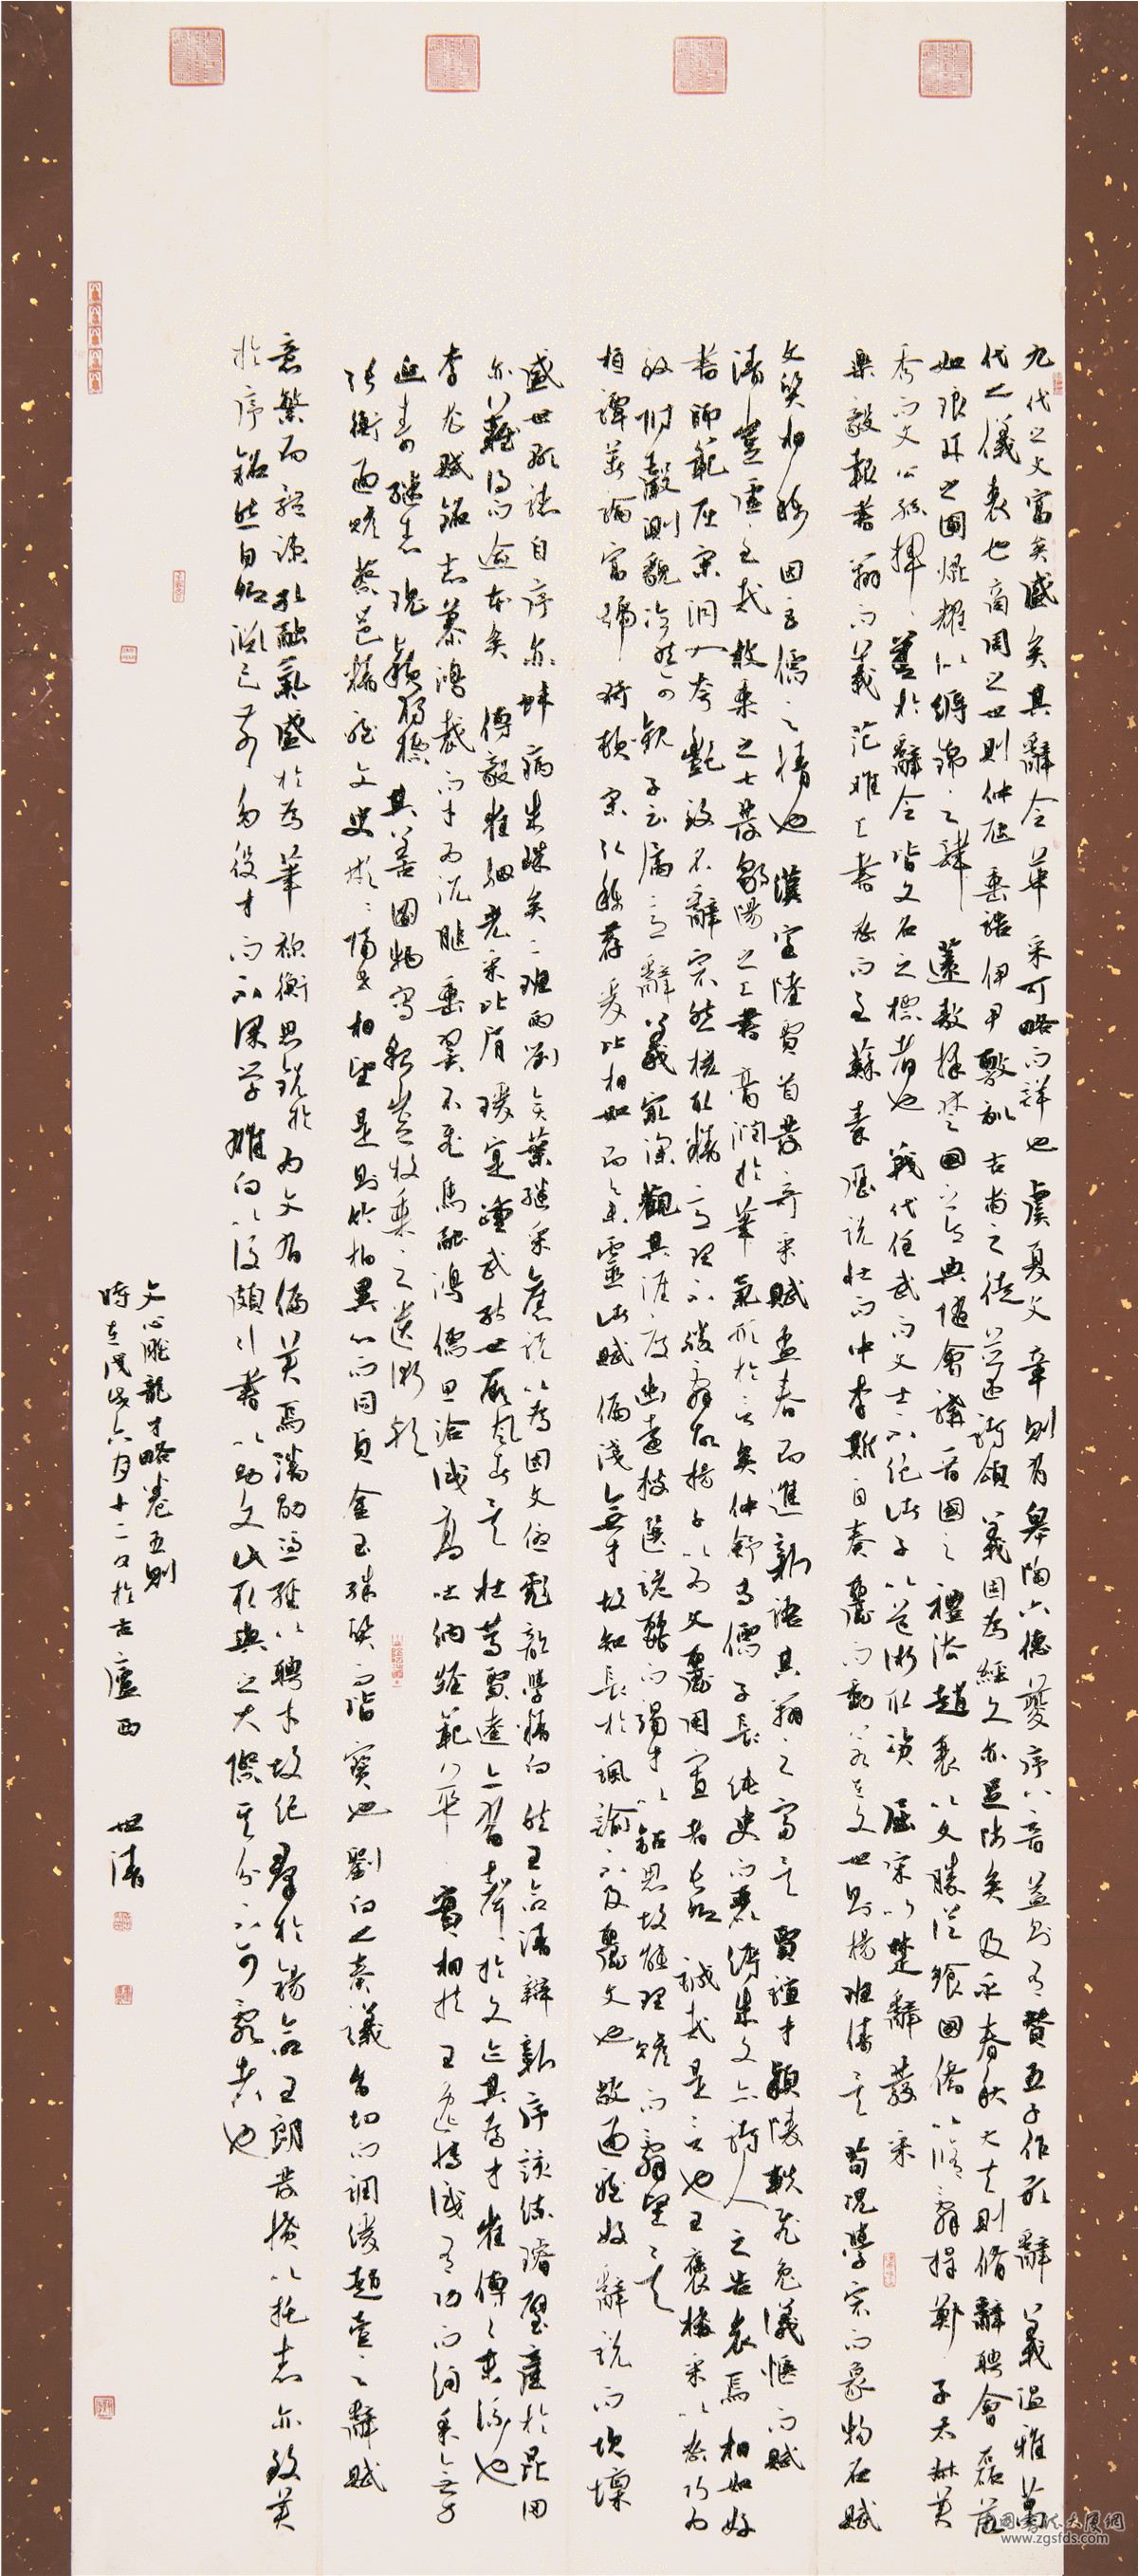 九代之文富矣盛矣其辭令華采可略而詳也虞夏文章則有皋陶六德夔序八音益則有贊五子作歌辭義溫雅萬
代之儀表也商周之世則仲虺垂誥伊尹敷訓吉甫之徒並述詩頌義固為經文亦足師矣及乎春秋大夫則脩辭聘會磊落
如琅玕之圃焜耀似縟錦之肆薳敖擇楚國之令典隨會講晉國之禮法趙衰以文勝從饗國僑以脩辭捍鄭子太叔美
秀而文公孫揮善於辭令皆文名之標者也戰代任武而文士不絕諸子以道術取資屈宋以楚辭發采
樂毅報書辨而義范雎上書密而至蘇秦歷說壯而中李斯自奏麗而動若在文世則楊班儔矣荀況學宗而象物名賦
文質相稱固巨儒之情也漢室陸賈首發奇采賦孟春而進新語其辨之富矣賈誼才穎陵軼飛兔議愜而賦
清豈虛至哉枚乘之七發鄒陽之上書膏潤於筆氣形於言矣仲舒專儒子長純史而麗縟成文亦詩人之告哀焉相如好
書師範屈宋洞入夸艷致名辭宗然核取精意理不勝辭故楊子以為文麗用寡者長卿誠哉是言也王褒構采以密巧為
致附聲測貌泠然可觀子雲屬意辭義最深觀其涯度幽遠搜選詭麗而竭才以鑽思故能理贍而辭堅矣
桓譚著論富號猗頓宋弘稱薦爰比相如而集靈諸賦偏淺無才故知長於諷諭不及麗文也敬通雅好辭說而坎壈
盛世顯志自序亦蚌病成珠矣二班兩劉奕葉繼采舊說以為固文優彪歆學精向然王命清辯新序該練璿璧產於崑岡
亦難得而逾本矣傅毅崔駰光采比肩瑗寔踵武能世厥風者矣杜篤賈逵亦有聲於文跡其為才崔傅之末流也
李尤賦銘志慕鴻裁而才力沉膇垂翼不飛馬融鴻儒思洽識高吐納經範華實相扶王逸博識有功而絢采無力
延壽繼志瑰穎獨標其善圖物寫貌豈枚乘之遺術歟
張衡通贍蔡邕精雅文史彬彬隔世相望是則竹柏異心而同貞金玉殊質而皆寶也劉向之奏議旨切而調緩趙壹之辭賦
意繁而體疏孔融氣盛於為筆禰衡思銳於為文有偏美焉潘勖憑經以騁才故絕群於錫命王朗發憤以托志亦致美
於序銘然自卿淵已前多役才而不課學雄向以後頗引書以助文此取與之大際其分不可亂者也
文心雕龍才略卷五則
時在戊戌六月十二日於古廬西 世清
www.zgsfds.com